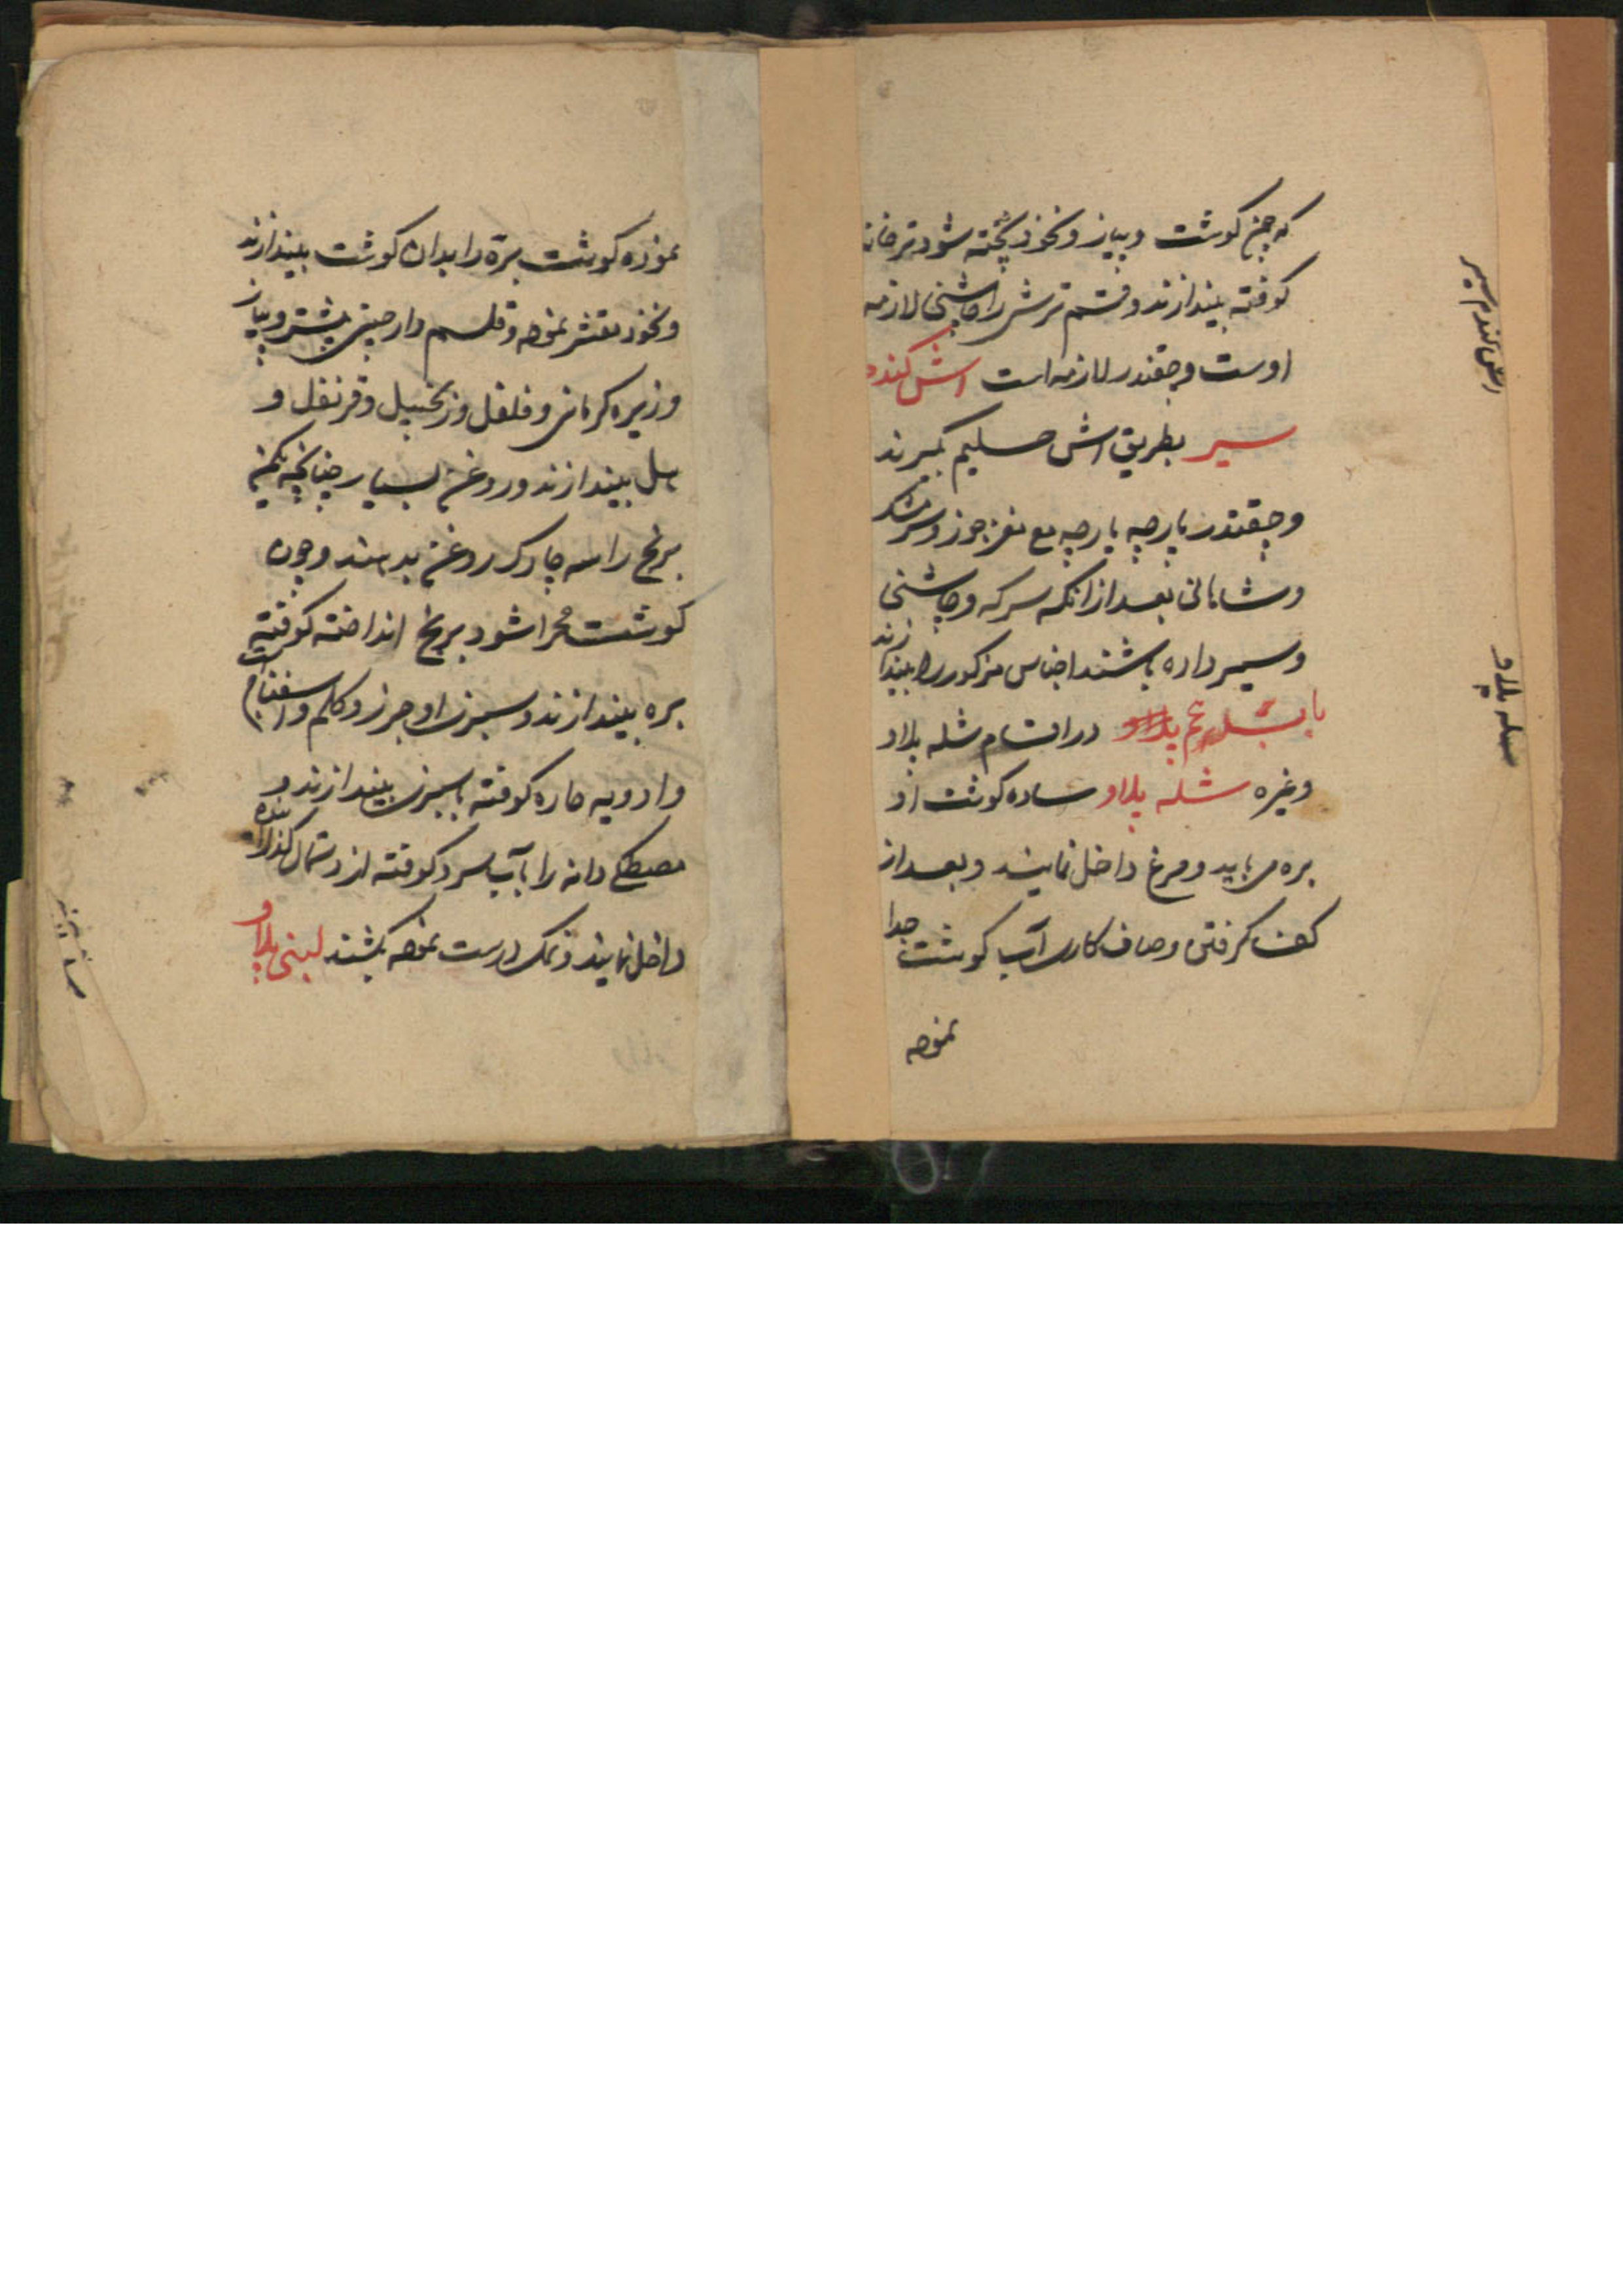 که چون گوشت و پیاز و نخود پخته شود ترخانه
کوفته بیندازند و قسم ترش را چاشنی لازمه
اوست و چقندر لازمه است اش کندم
سیر بطریق اش حلیم بگیرند
و چقندر پارچه پارچه مع مغز جوز و
و بعد از انکه سرکه و چاشنی
و سیر داده باشند اجناس مذکور را بیندازند
باب در اقسام شله پلاو
و غیره شله پلاو ساده گوشت از
بره می باید و مرغ داخل نمایند و بعد از
کف گرفتن و صاف کاری آب گوشت جدا
نموده
اش کندم سیر
شله پلاو
نموده گوشت بره را بدان گوشت بیندازند
و نخود مقشر نموده و قلم دارچینی پیشتر و پیاز
و زیره کرمانی و فلفل و زنجبیل و قرنفل و
هل بیندازند و روغن بسیار چنانچه یکمن
برنج را سه چارک روغن بدهند و چون
گوشت مهرا شود برنج انداخته کوفته
بره بیندازند و سبزی او جزر و کلم و اسفناج است
و ادویه حاره کوفته با سبزی بیندازند و
مصطکی دانه را باآب سرد کوفته از دستمال گذرانده
داخل نمایند و نمک درست نموده بکشند لبنی پلاو